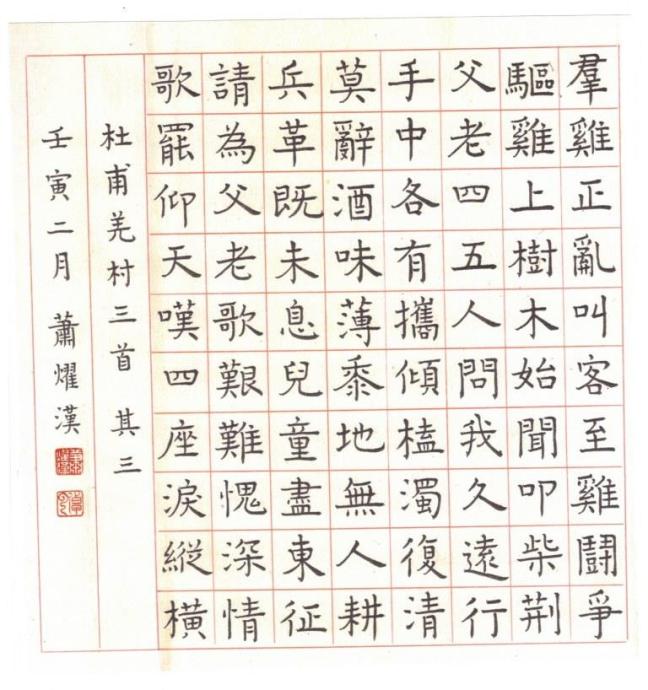 羣雞正亂叫客至雞鬪爭
驅雞上樹木始聞叩柴荆
父老四五人問我久遠行
手中各有攜傾榼濁復清
莫辭酒味薄黍地無人耕
兵革既未息兒童盡東征
請為父老歌艱難愧深情
歌罷仰天嘆四座淚縱橫
杜甫羌村三首 其三
壬寅二月 蕭燿漢